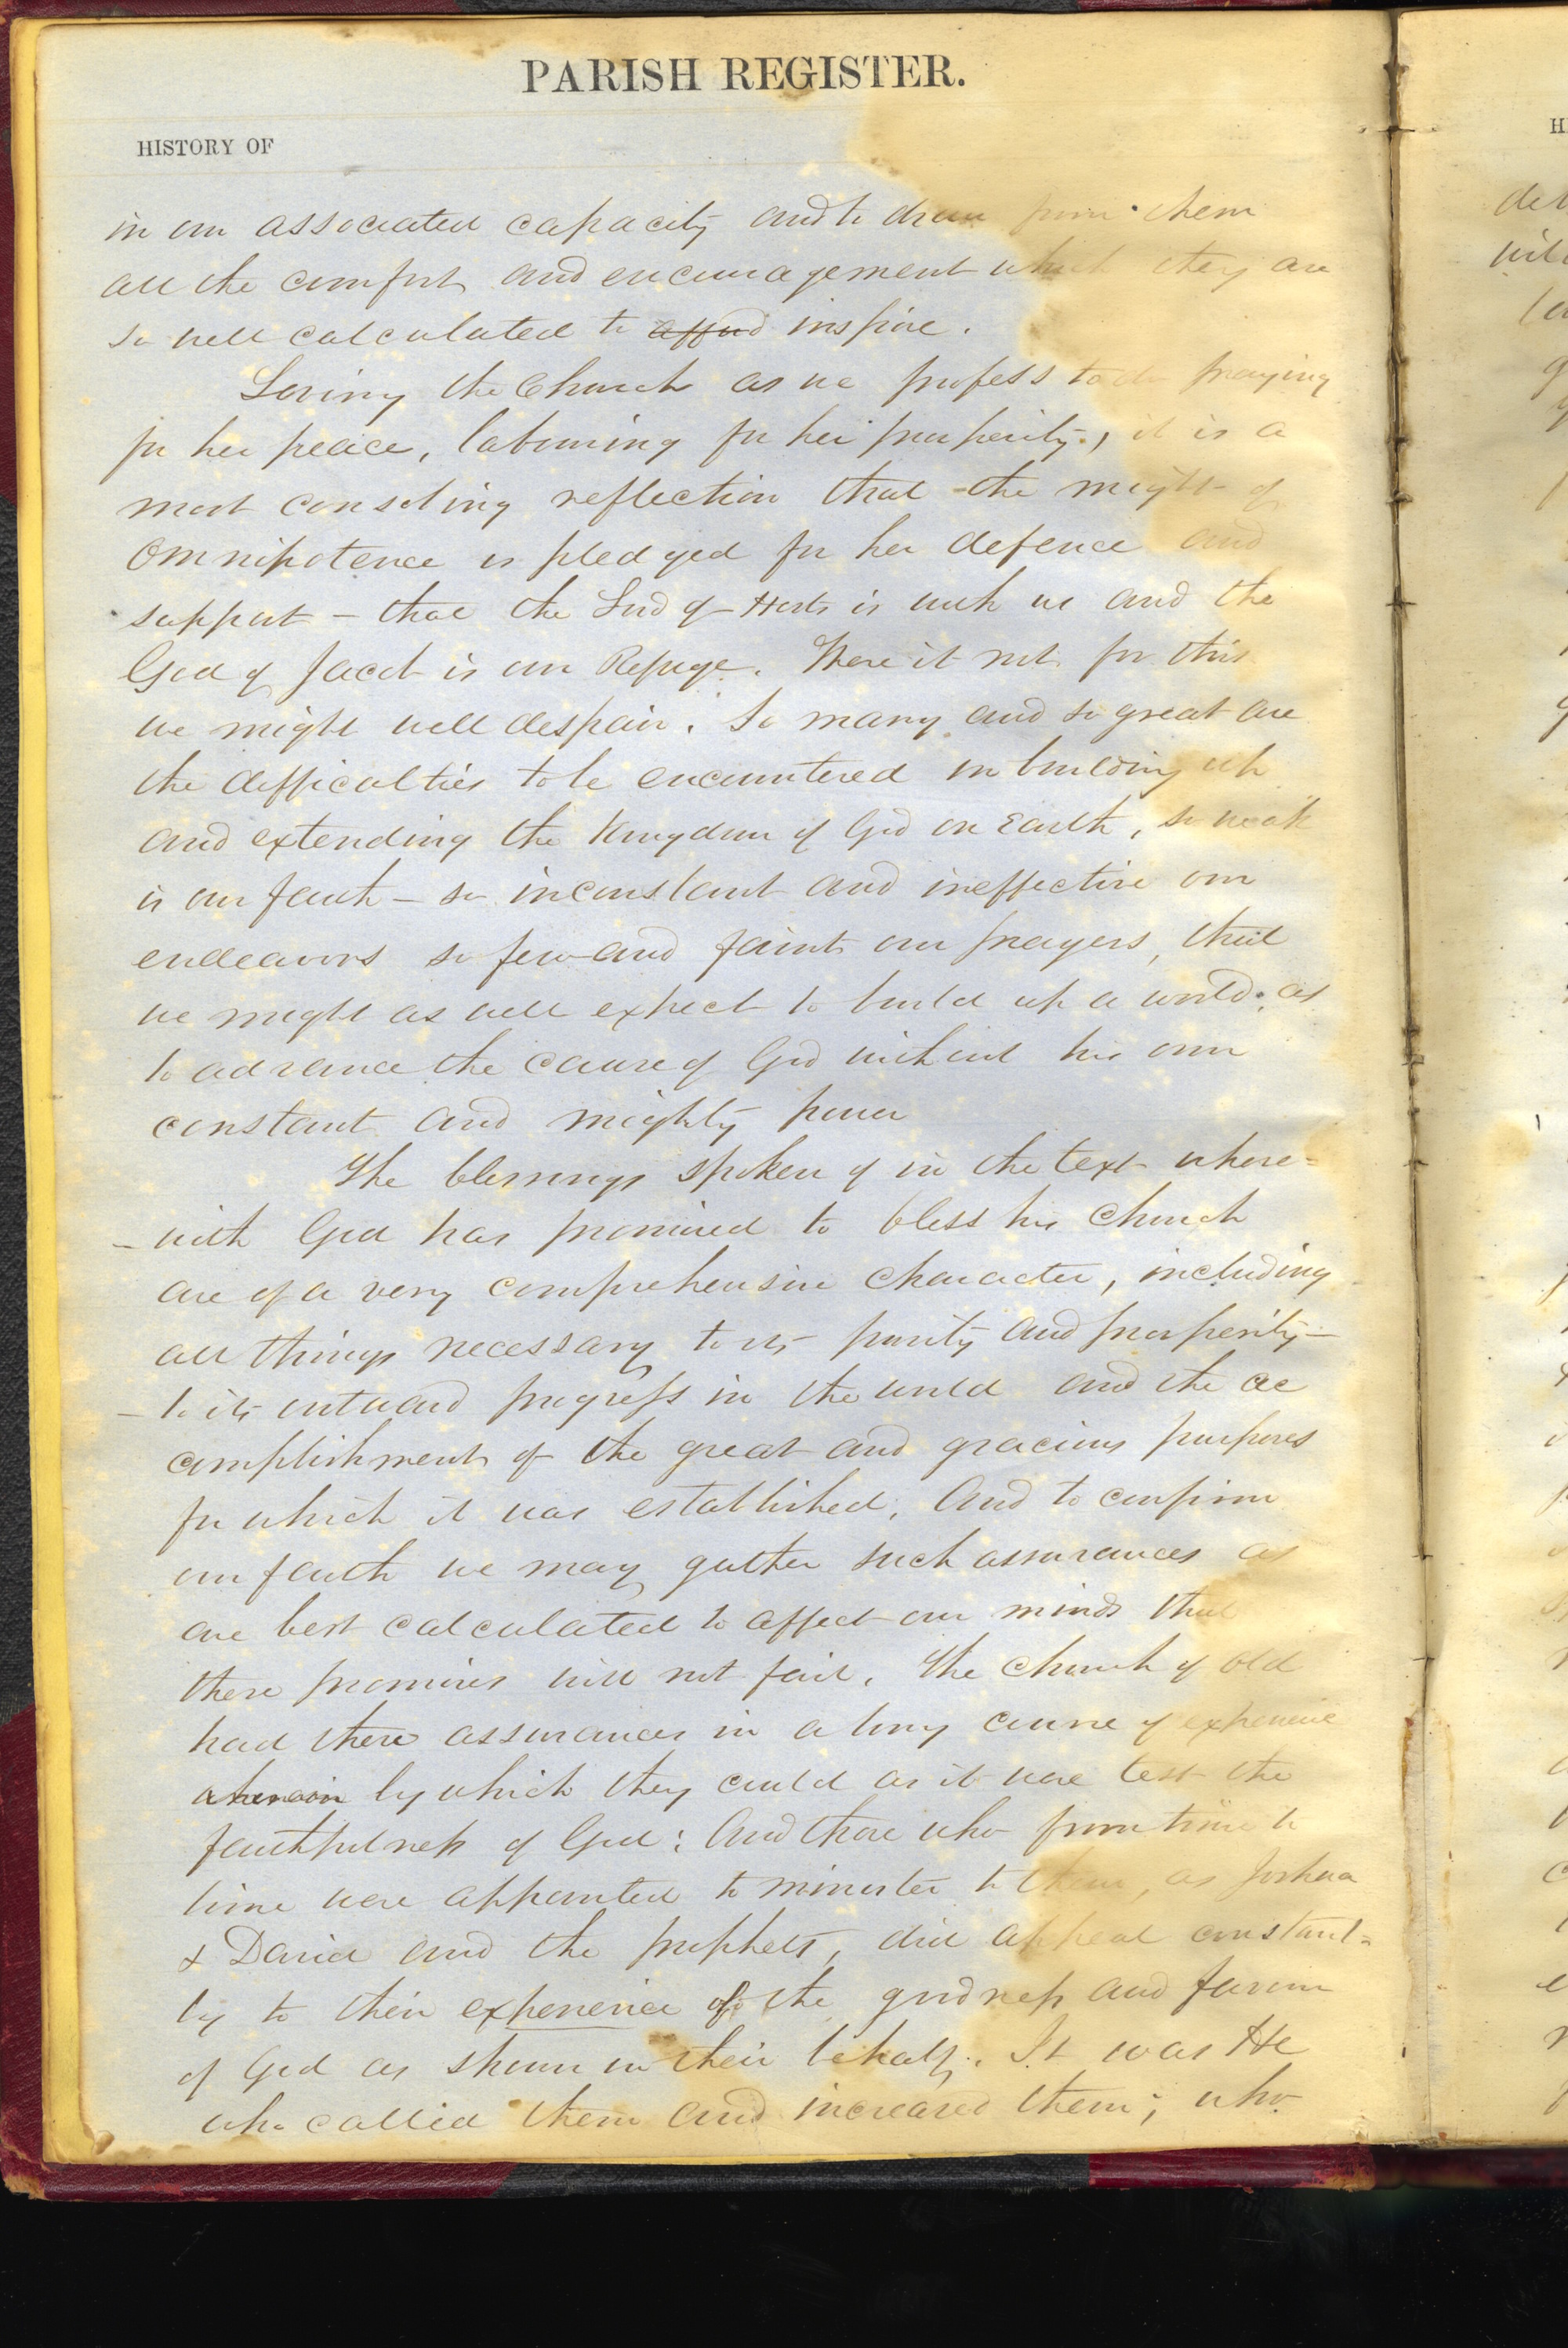 PARISH REGISTER.
HISTORY OF
in our associated capacity and to draw from them
all the comfort and encouragement which they are
so well calculated to afford inspire.
Loving the Church as we profess to do praying
for her peace, labouring for her prosperity, it is a
most consoling reflection that the might of
Omnipotence is pledged for her defence and
support – that the Lord of Hosts is with us and the
God of Jacob is our Refuge. Were it not for this
we might well despair. So many and so great are
the difficulties to be encountered in building up
and extending the Kingdom of God on Earth, so weak
is our faith – so inconstant and ineffective our
endeavors so few and faint our prayers, that
we might as well expect to build up a world, as
to advance the cause of God without his own
constant and mighty power
The blessings spoken of in the text where=
– with God has promised to bless his Church
are of a very comprehensive character, including
all things necessary to its purity and prosperity –
– to its outward progress in the world and the ac
complishment of the great and gracious purposes
for which it was established. And to confirm
our faith we may gather such assurances as
are best calculated to affect our minds that
these promises will not fail. The Church of old
had these assurances in a long course of experience
wherein by which they could as it were test the
faithfulness of God: And those who from time to
time were appointed to minister to them, as Joshua
& David and the prophets, did appeal constant=
ly to their experience of the goodness and favour
of God as shown in their behalf. It was He
who called them and increased them; who